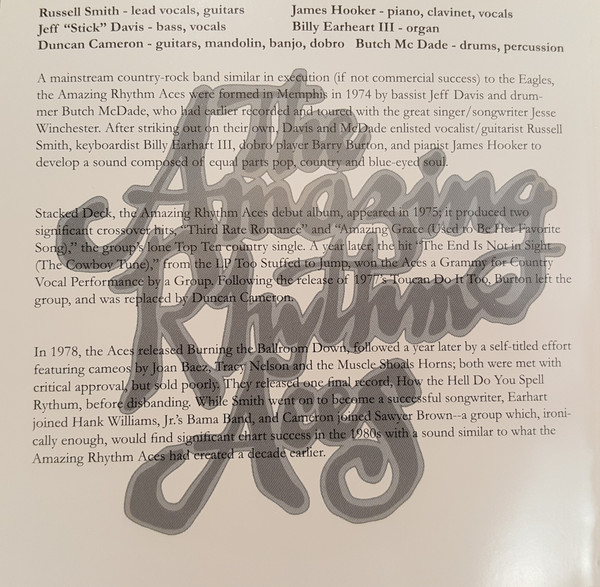 Russell Smith - lead vocals, guitars James Hooker - piano, clavinet, vocals
Jeff “Stick” Davis - bass, vocals Billy Earheart III - organ
Duncan Cameron - guitars, mandolin, banjo, dobro Butch Mc Dade - drums, percussion
A mainstream country-rock band similar in execution (if not commercial success) to the Eagles,
the Amazing Rhythm Aces were formed in Memphis in 1974 by bassist Jeff Davis and drum-
mer Butch McDade, who had earlier recorded and toured with the great singer/songwriter Jesse
Winchester. After striking out on their own, Davis and McDade enlisted vocalist/guitarist Russell
Smith, keyboardist Billy Earhart III, dobro player Barry Burton, and pianist James Hooker to
develop a sound composed of equal parts pop, country and blue-eyed soul.
Stacked Deck, the Amazing Rhythm Aces debut album, appeared in 1975; it produced two
significant crossover hits, “Third Rate Romance” and “Amazing Grace (Used to Be Her Favorite
Song),” the group's lone Top Ten country single. A year later, the hit “The End Is Not in Sight
(The Cowboy Tune),” from the LP Too Stuffed to Jump, won the Aces a Grammy for Country
Vocal Performance by a Group. Following the release of 1977's Toucan Do It Too, Burton left the
group, and was replaced by Duncan Cameron.
In 1978, the Aces released Burning the Ballroom Down, followed a year later by a self-titled effort
featuring cameos by Joan Baez, Tracy Nelson and the Muscle Shoals Horns; both were met with
critical approval, but sold poorly. They released one final record, How the Hell Do You Spell
Rythum, before disbanding. While Smith went on to become a successful songwriter, Earhart
joined Hank Williams, Jr.'s Bama Band, and Cameron joined Sawyer Brown--a group which, ironi-
cally enough, would find significant chart success in the 1980s with a sound similar to what the
Amazing Rhythm Aces had created a decade earlier.
The
Amazing
Rhythm
Aces